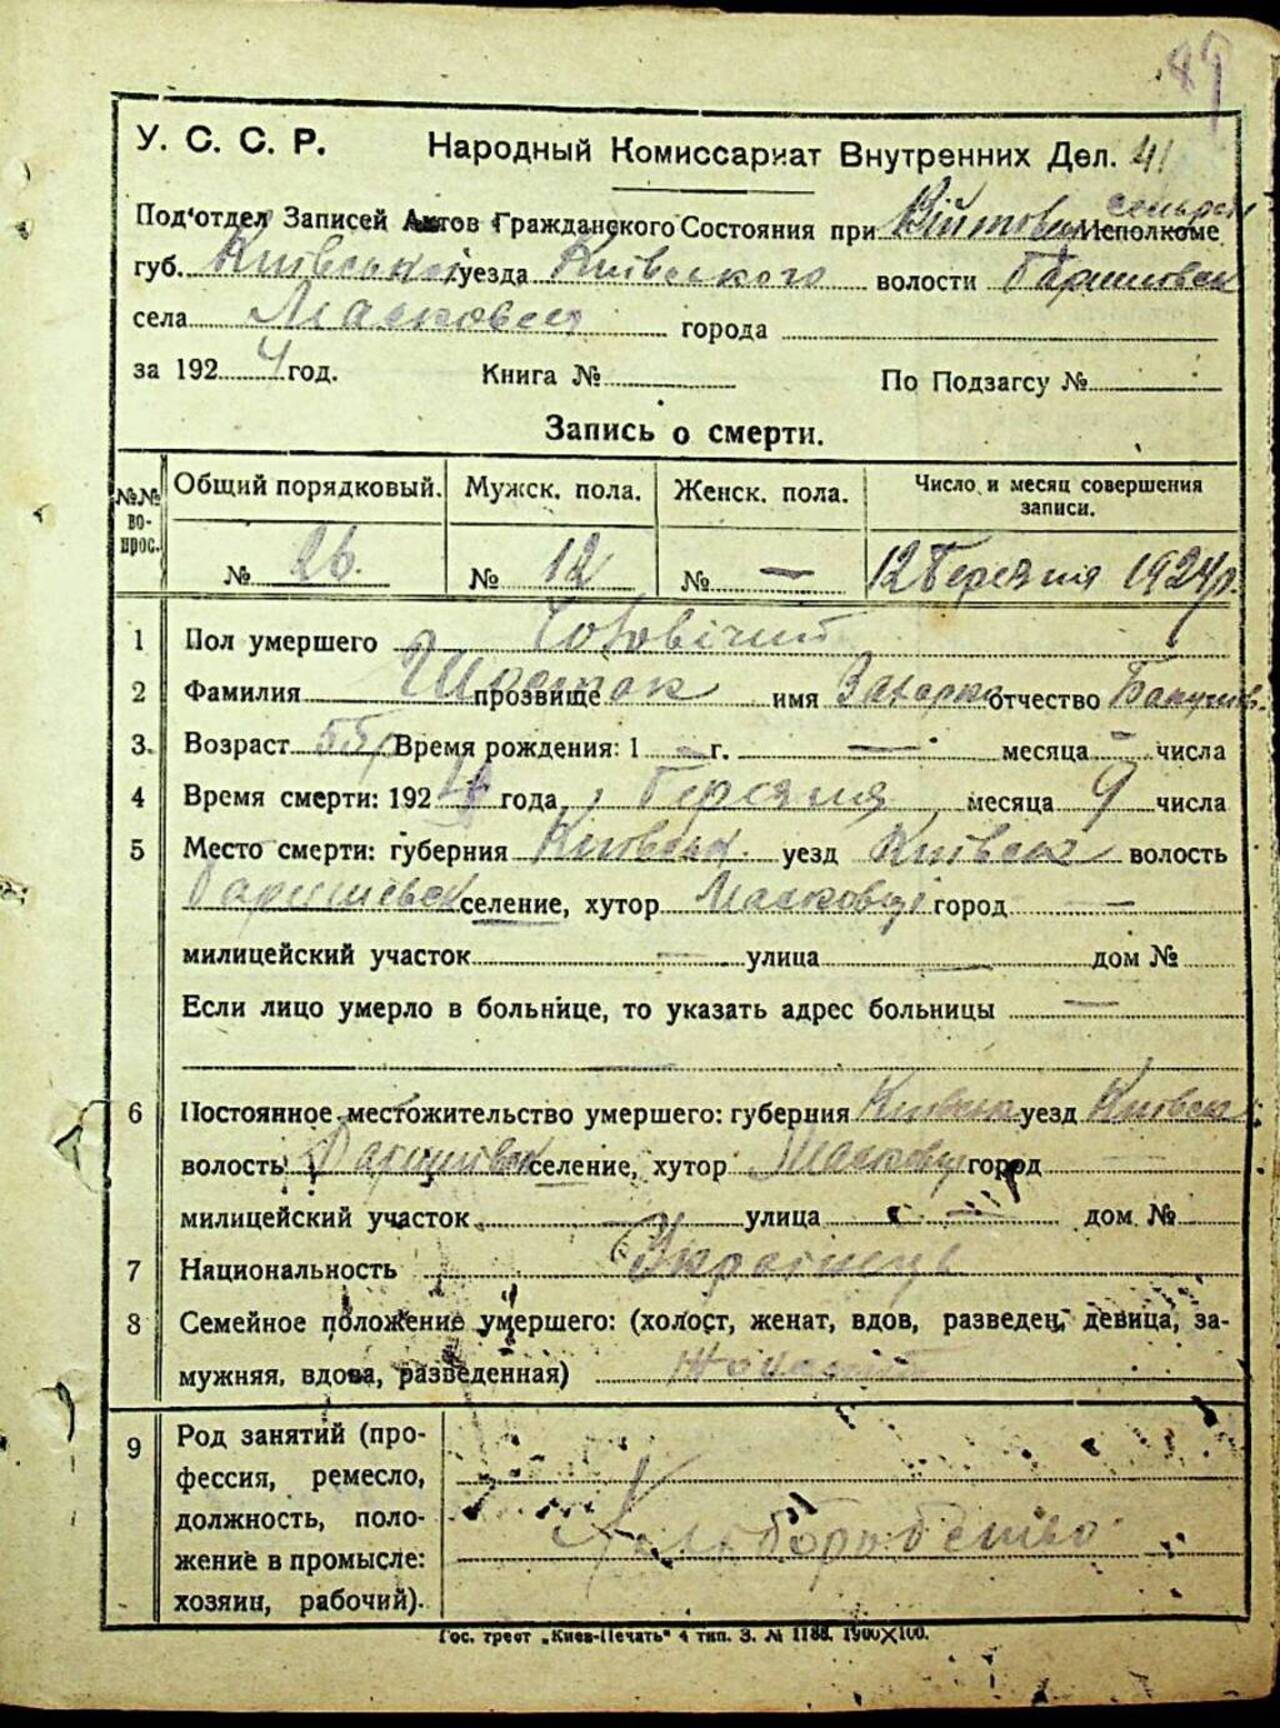 89
У. С. С. Р. Народный Комиссариат Внутренних Дел. 41
сельраді
Под'отдел Записей Актов Гражданского Состояния при Війтовец Исполкоме
губ. Київської уезда Київского волости Баришовск
села Масковец города
за 1924 год. Книга № По Подзагсу №
Запись о смерти.
№№ вопрос. Общий порядковый. Мужск. пола. Женск. пола. Число и месяц совершения записи.
№ 26. № 12 № — 12 Березня 1924 р.
1 Пол умершего Чоловічий
2 Фамилия Шостак прозвище имя Захарко отчество
3. Возраст 55 р Время рождения: 1 — г. — месяца — числа
4 Время смерти: 1924 года, Березня месяца 9 числа
5 Место смерти: губерния Київськ. уезд Київск волость
Баришевск селение, хутор Масковці город —
милицейский участок — улица — дом №
Если лицо умерло в больнице, то указать адрес больницы —
—
6 Постоянное местожительство умершего: губерния Київск уезд Київск
волость Баришівск селение, хутор Масковці город —
милицейский участок — улица — дом №
7 Национальность Українець
8 Семейное положение умершего: (холост, женат, вдов, разведен, девица, за-
мужняя, вдова, разведенная) Жонатий
9 Род занятий (про-
фессия, ремесло,
должность, поло- Хліборобство
жение в промысле:
хозяин, рабочий).
Гос. трест „Киев-Печать" 4 тип. З. № 1188. 1900×100.